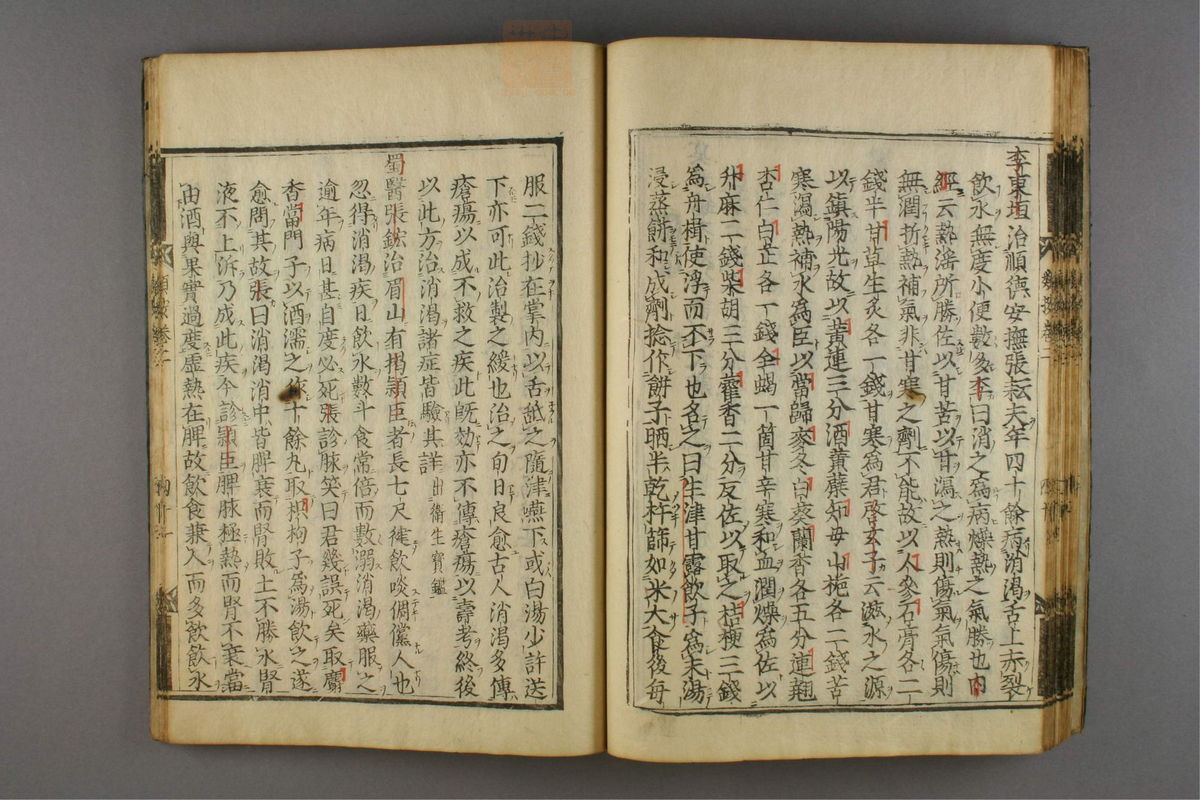 李東垣治順德安撫張耘夫年四十餘病消渴舌上赤裂
飲水無度小便數多李曰消之為病燥熱之氣勝也內
經云熱淫所勝佐以甘苦以甘瀉之熱則傷氣氣傷則
無潤折熱補氣非甘寒之劑不能故以人參石膏各二
錢半甘草生炙各一錢甘寒為君啓玄子云滋水之源
以鎮陽光故以黃連三分酒黃蘗知母山梔各二錢苦
寒瀉熱補水為臣以當歸麥冬白葵蘭香各五分連翹
杏仁白芷各一錢全蝎一箇甘辛寒和血潤燥為佐以
升麻二錢柴胡三分藿香二分反佐以取之桔梗三錢
為舟楫使浮而不下也名之曰生津甘露飲子為末湯
浸蒸餅和成劑捻作餅子晒半乾杵篩如米大食後每
服二錢抄在掌內以舌舐之隨津嚥下或白湯少許送
下亦可此治製之緩也治之旬日良愈古人消渴多傳
瘡瘍以成不救之疾此既効亦不傳瘡瘍以壽考終後
以此方治消渴諸症皆驗其詳出衞生寶鑑
蜀醫張鋐治眉山有揭頴臣者長七尺徤飲啖倜儻人也
忽得消渴疾日飲水數斗食常倍而數溺消渴藥服之
逾年病日甚自度必死張診脉笑曰君幾誤死矣取麝
香當門子以酒濡之作十餘九取枳枸子為湯飲之遂
愈問其故張曰消渴消中皆脾衰而腎敗土不勝水腎
液不上泝乃成此疾今診頴臣脾脉極熱而腎不衰當
由酒與果實過度虛熱在脾故飲食兼人而多飲飲水